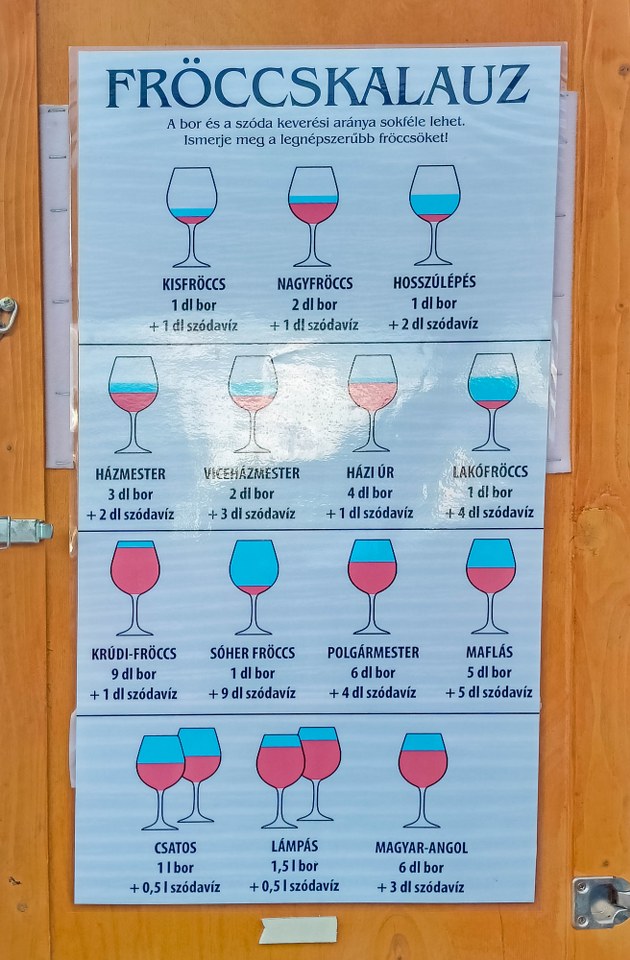 FRÖCCSKALAUZ
A bor és a szóda keverési aránya sokféle lehet.
Ismerje meg a legnépszerűbb fröccsöket!
KISFRÖCCS
1 dl bor
+ 1 dl szódavíz
NAGYFRÖCCS
2 dl bor
+ 1 dl szódavíz
HOSSZÚLÉPÉS
1 dl bor
+ 2 dl szódavíz
HÁZMESTER
3 dl bor
+ 2 dl szódavíz
VICEHÁZMESTER
2 dl bor
+ 3 dl szódavíz
HÁZI ÚR
4 dl bor
+ 1 dl szódavíz
LAKÓFRÖCCS
1 dl bor
+ 4 dl szódavíz
KRÚDI-FRÖCCS
9 dl bor
+ 1 dl szódavíz
SÓHER FRÖCCS
1 dl bor
+ 9 dl szódavíz
POLGÁRMESTER
6 dl bor
+ 4 dl szódavíz
MAFLÁS
5 dl bor
+ 5 dl szódavíz
CSATOS
1 l bor
+ 0,5 l szódavíz
LÁMPÁS
1,5 l bor
+ 0,5 l szódavíz
MAGYAR-ANGOL
6 dl bor
+ 3 dl szódavíz